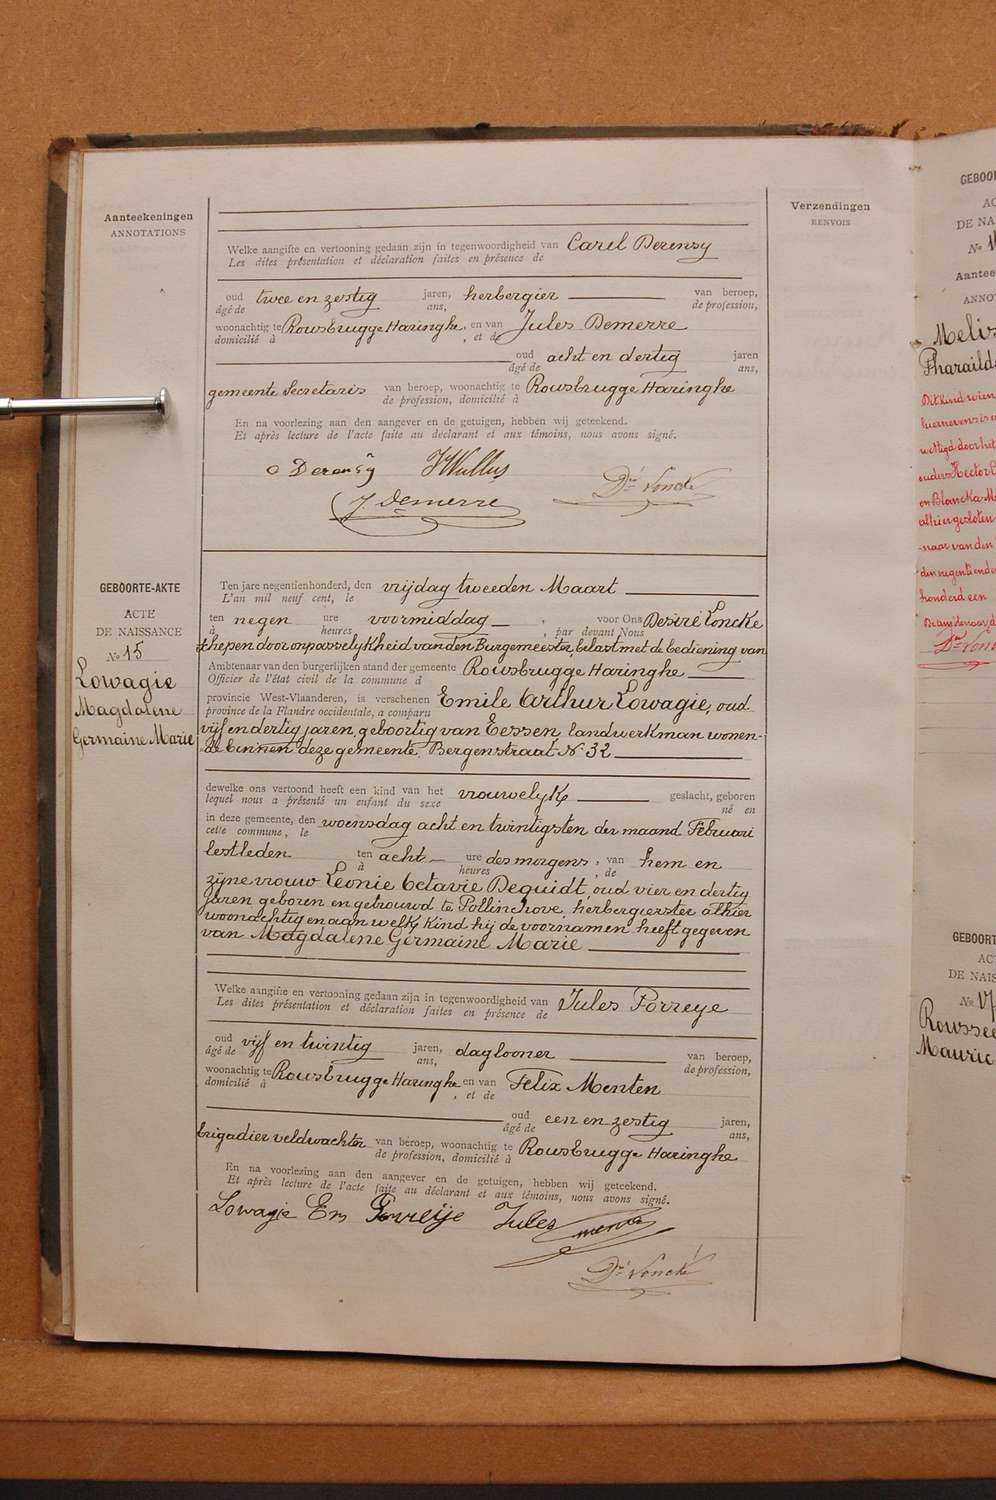 Aanteekeningen
ANNOTATIONS
Verzendingen
RENVOIS
Welke aangifte en vertooning gedaan zijn in tegenwoordigheid van Carel Derensy
Les dites présentation et déclaration faites en présence de
oud twee en zestig jaren, herbergier van beroep,
âgé de ans, de profession,
woonachtig te Rousbrugge Haringhe, en van Jules Demerre
domicilié à , et de
oud acht en dertig jaren
âgé de ans,
gemeente Secretaris van beroep, woonachtig te Rousbrugge Haringhe
de profession, domicilié à
En na voorlezing aan den aangever en de getuigen, hebben wij geteekend.
Et après lecture de l'acte faite au déclarant et aux témoins, nous avons signé.
C Derensÿ
J Demerre
Dré Loncke
GEBOORTE-AKTE
ACTE
DE NAISSANCE
No 15
Lowagie
Magdalene
Germaine Marie
Ten jare negentienhonderd, den vrijdag tweeden Maart
L'an mil neuf cent, le
ten negen ure voormiddag , voor Ons Desiré Loncke
à heures , par devant Nous
schepen door onpasselijkheid van den Burgemeester, belast met de bediening van
Ambtenaar van den burgerlijken stand der gemeente Rousbrugge Haringhe
Officier de l'état civil de la commune d
provincie West-Vlaanderen, is verschenen Emile Arthur Lowagie, oud
province de la Flandre occidentale, a comparu
vijf en dertig jaren, geboortig van Eessen, landwerkman wonen-
de binnen deze gemeente, Bergenstraat No 32
dewelke ons vertoond heeft een kind van het vrouwelyk geslacht, geboren
lequel nous a présenté un enfant du sexe né en
in deze gemeente, den woensdag acht en twintigsten der maand Februari
cette commune, le
lestleden ten acht ure des morgens, van hem en
à heures , de
zijne vrouw Leonie Octavie Deguidt, oud vier en dertig
jaren geboren en getrouwd te Pollinchove, herbergierster alhier
woonachtig en aan welk kind hij de voornamen heeft gegeven
van Magdalene Germaine Marie
Welke aangifte en vertooning gedaan zijn in tegenwoordigheid van Jules Porreye
Les dites présentation et déclaration faites en présence de
oud vijf en twintig jaren, daglooner van beroep,
âgé de ans, de profession,
woonachtig te Rousbrugge Haringhe en van Felix Menten
domicilié à , et de
oud een en zestig jaren,
âgé de ans,
brigadier veldwachter van beroep, woonachtig te Rousbrugge Haringhe
de profession, domicilié à
En na voorlezing aan den aangever en de getuigen, hebben wij geteekend.
Et après lecture de l'acte faite au déclarant et aux témoins, nous avons signé.
Lowagie Em Porreije Jules
Dré Loncke
GEBOOR
AC
DE NA
No 1
Aantee
ANNO
Melis
Pharaild
Dit kind wien
wettigd door het
ouders Hector
en Blancka M
alhier gesloten
-naar van den
den negentiende
honderd een
GEBOORT
ACT
DE NAIS
No 17
Roussee
Mauric